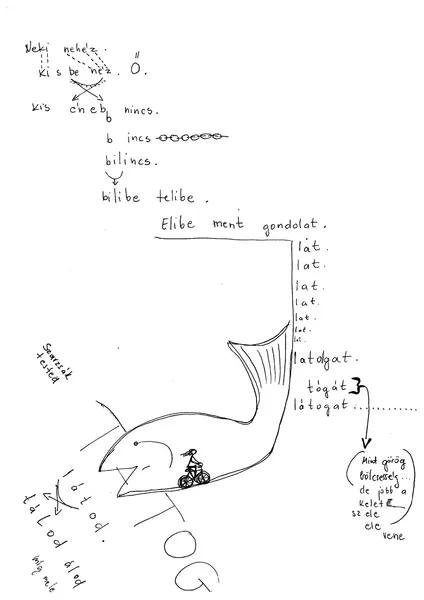 Neki nehéz.
kis be néz. Ő.
kis c'heb nincs.
b
b incs
bilincs.
bilibe telibe.
Elibe ment gondolat.
lát.
lat.
lat.
lat.
lat.
lat.
lat.
latolgat.
tógát
látogat............
(Mint görög
bölcsesség...
de jobb a
kelet
szele
ele
vene
Szarzsák
tested
látod.
tálod álod
míg mele
OG